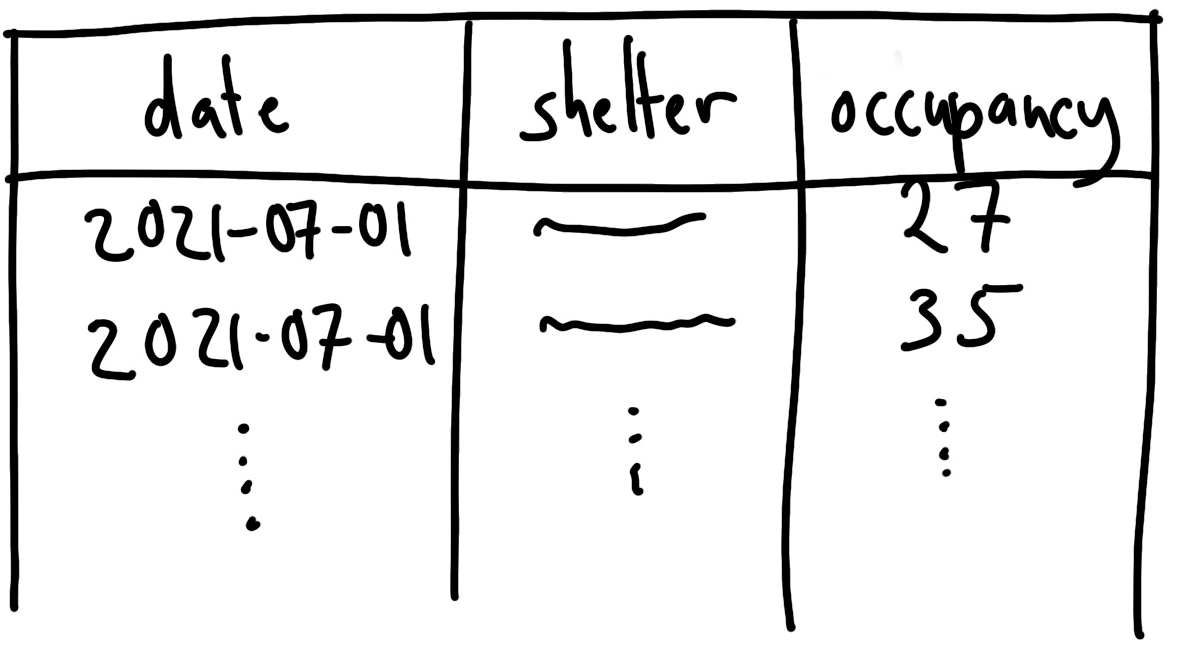 date shelter occupancy
2021-07-01 27
2021-07-01 35